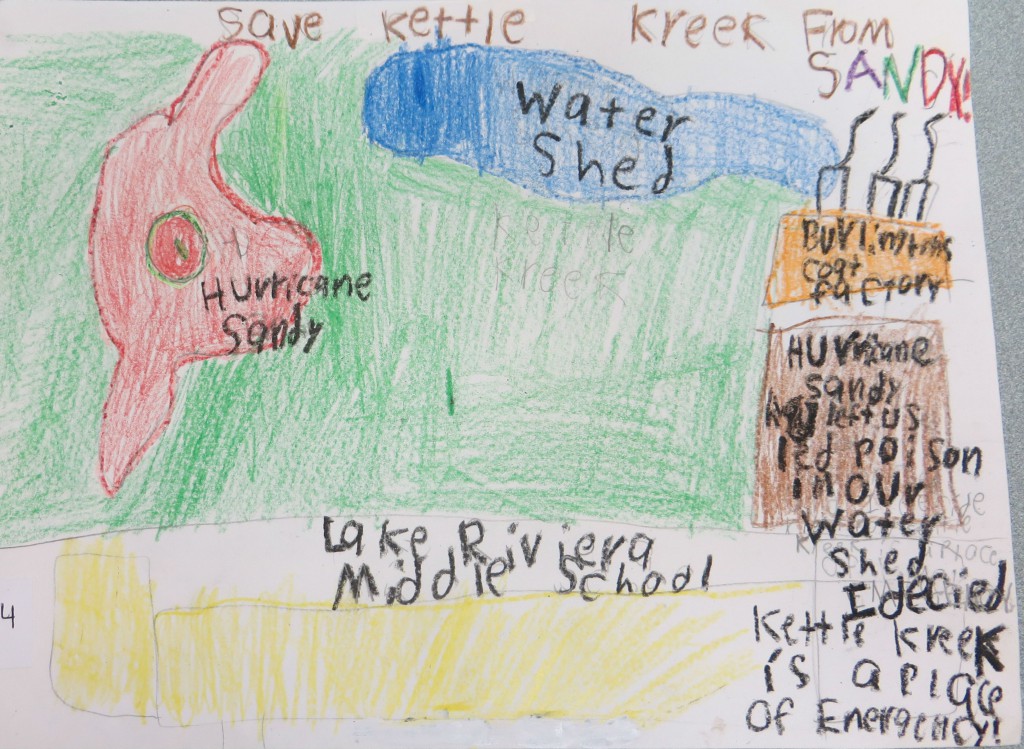 Save Kettle Kreek From
SANDY!
Water
Shed
Kettle
Kreek
Hurricane
Sandy
Coat
Factory
HUrricane
Sandy
led poison
in our
Water
Shed
I decied
Kettle Kreek
is a place
Of Energency!
Lake Riviera
Middle School
4